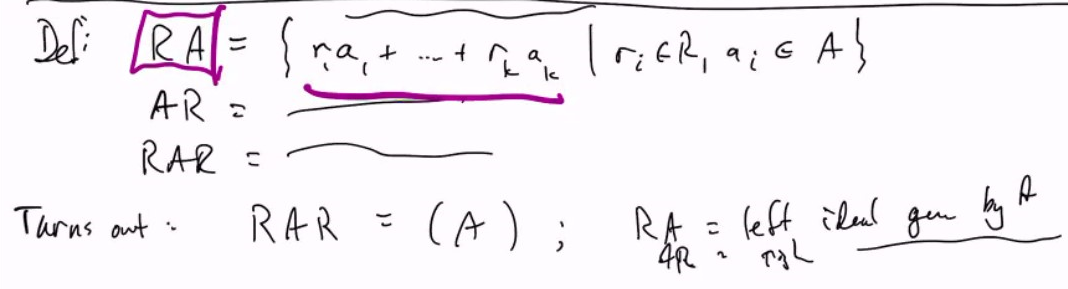 Def: RA = { r₁a₁ + ... + r_k a_k | r_i ∈ R, a_i ∈ A }
AR =
RAR =
Turns out : RAR = (A) ; RA = left ideal gen by A
AR =